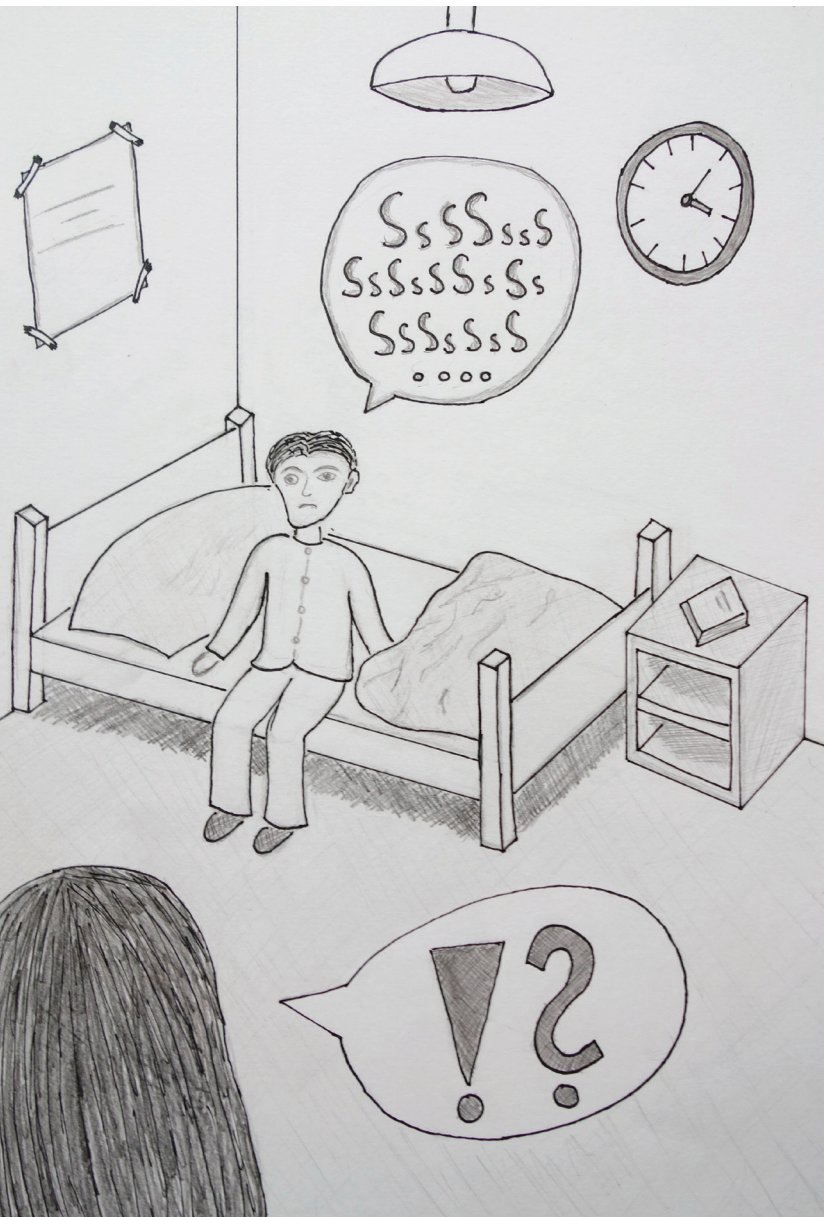 SsSSssS
SsSsSSsSs
SsSsSsS
....
!?